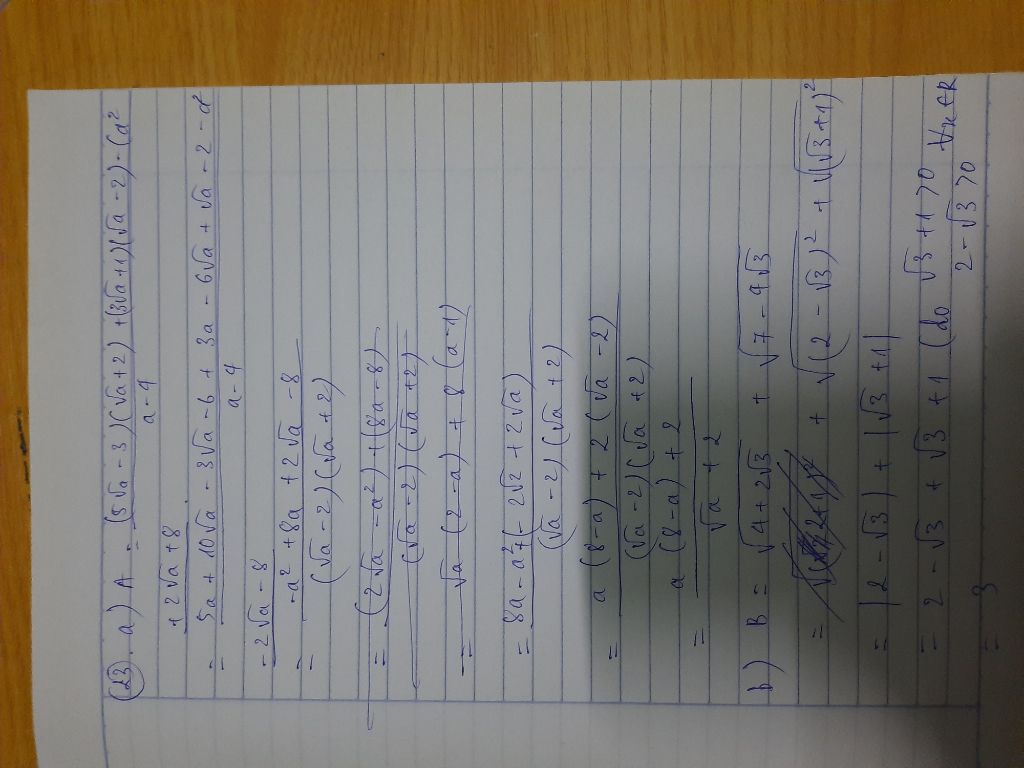 (23). a) A = (5√a - 3)(√a + 2) + (3√a + 1)(√a - 2) - (a²
a - 4
+ 2√a + 8
= 5a + 10√a - 3√a - 6 + 3a - 6√a + √a - 2 - a²
a - 4
- 2√a - 8
= -a² + 8a + 2√a - 8
(√a - 2)(√a + 2)
= (2√a - a²) + (8a - 8)
(√a - 2)(√a + 2)
= √a (2 - a) + 8 (a - 1)
= 8a - a² + (- 2√2 + 2√a)
(√a - 2)(√a + 2)
= a (8 - a) + 2 (√a - 2)
(√a - 2)(√a + 2)
= a (8 - a) + 2
√a + 2
b) B = √4 + 2√3 + √7 - 4√3
= + √(2 - √3)² + √(√3 + 1)²
= |2 - √3| + |√3 + 1|
= 2 - √3 + √3 + 1 (do √3 + 1 > 0 ∀x ∈ R
2 - √3 > 0
= 3